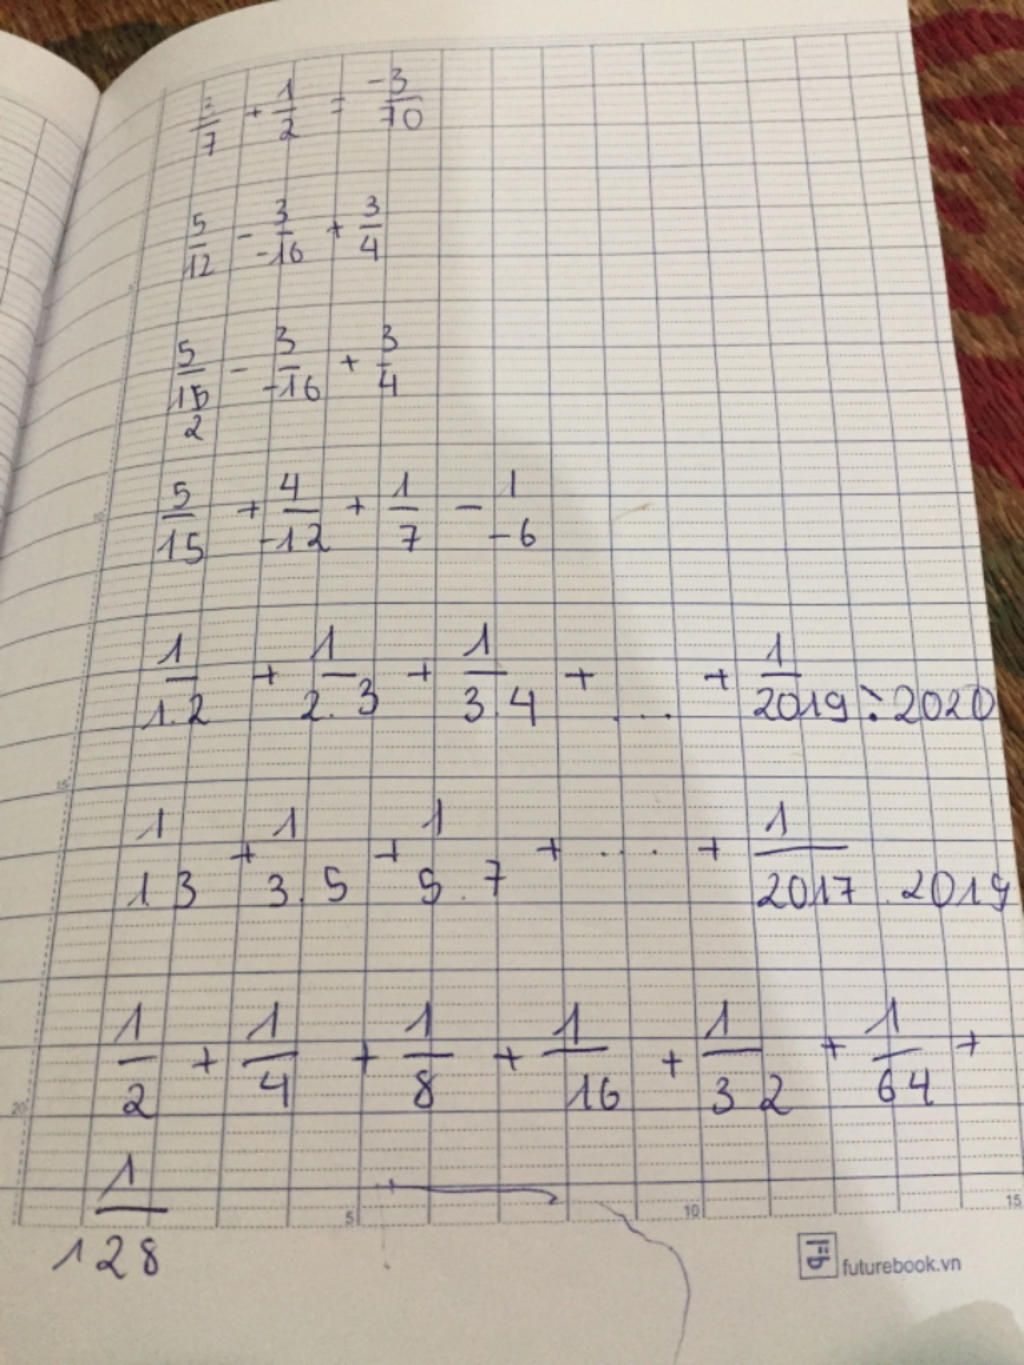 ?/7 + 1/2 = -3/70
5/12 - 3/-16 + 3/4
5/15 - 3/-16 + 3/4
2
5/15 + 4/-12 + 1/7 - 1/-6
1/1.2 + 1/2.3 + 1/3.4 + .... + 1/2019:2020
1/1.3 + 1/3.5 + 1/5.7 + .... + 1/2017.2019
1/2 + 1/4 + 1/8 + 1/16 + 1/32 + 1/64 +
1/128
5 10 15
15
20
futurebook.vn